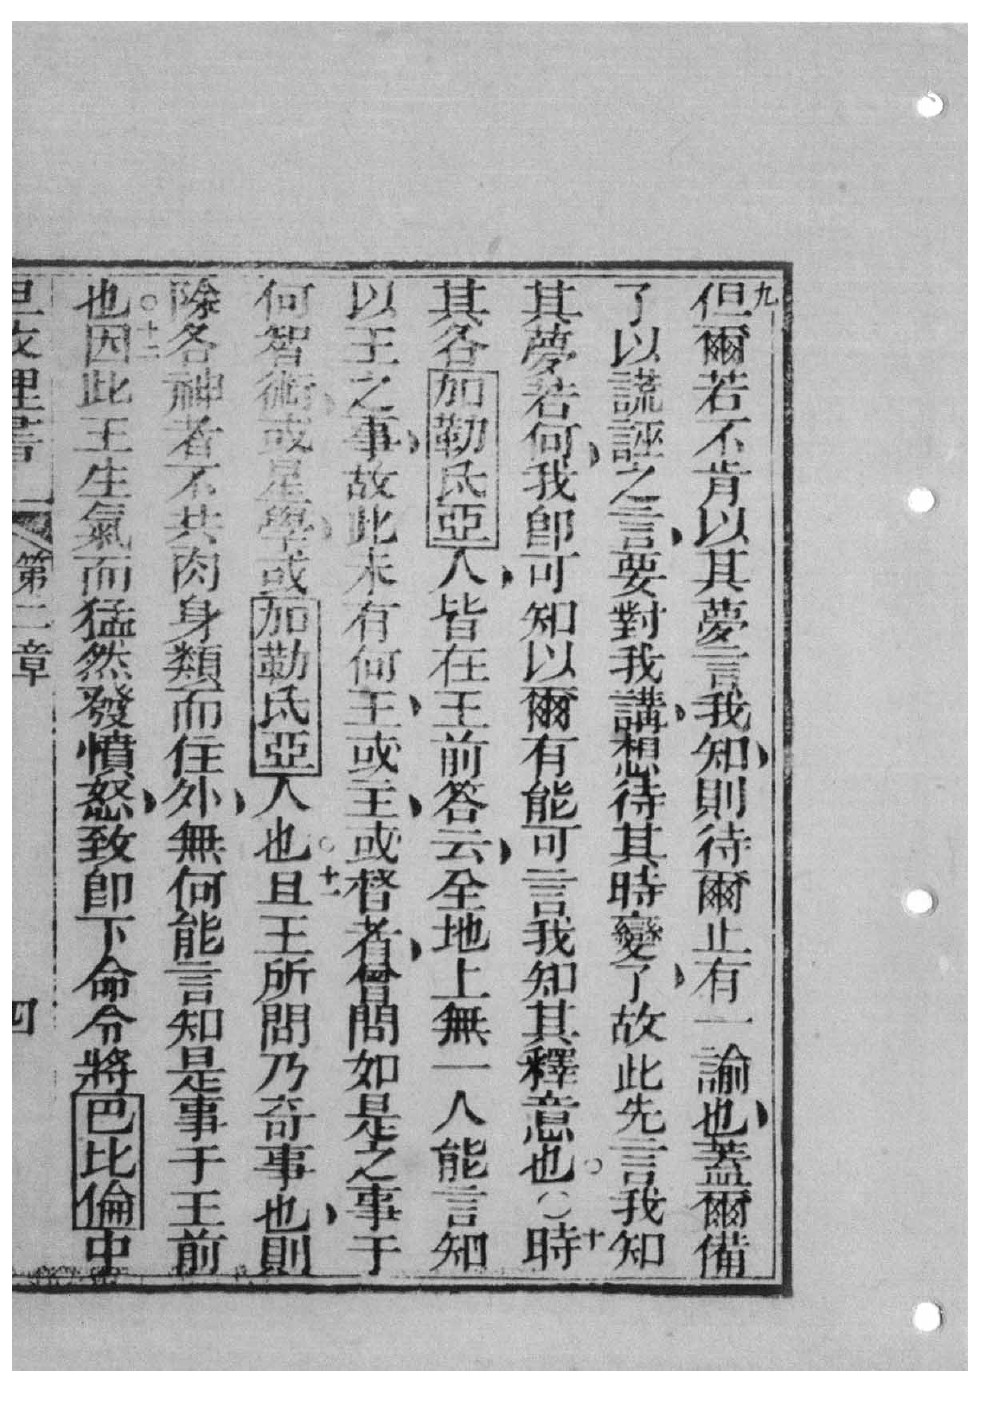 九但爾若不肯以其夢言我知則待爾止有一諭也蓋爾備
了以謊誣之言要對我講想待其時變了故此先言我知
其夢若何我即可知以爾有能可言我知其釋意也。○十時
其各加勒氐亞人皆在王前答云全地上無一人能言知
以王之事故此未有何王或王或督者曾問如是之事于
何智術或星學或加勒氐亞人也。十一且王所問乃奇事也則
除各神者不共肉身類而住外無何能言知是事于王前
也○十二因此王生氣而猛然發憤怒致即下命令將巴比倫中
第二章 四